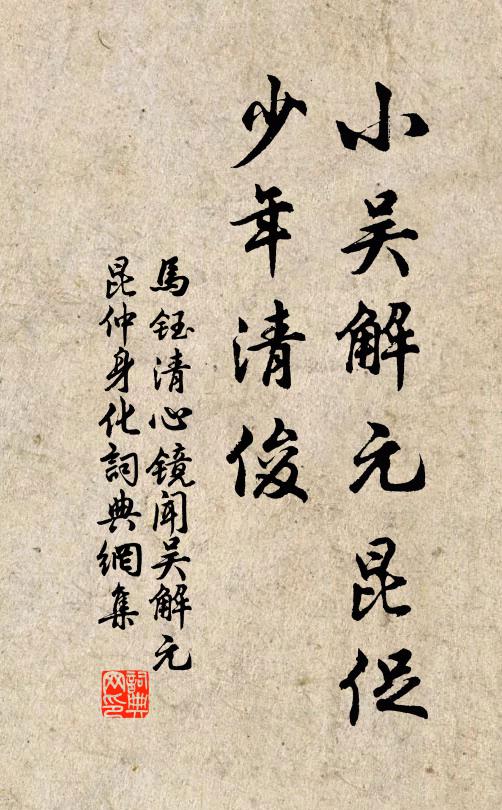 小吴解元昆促
少年清俊
馬鈺清心镜闻吴解元
昆仲身化詞典網集
詞典
网印